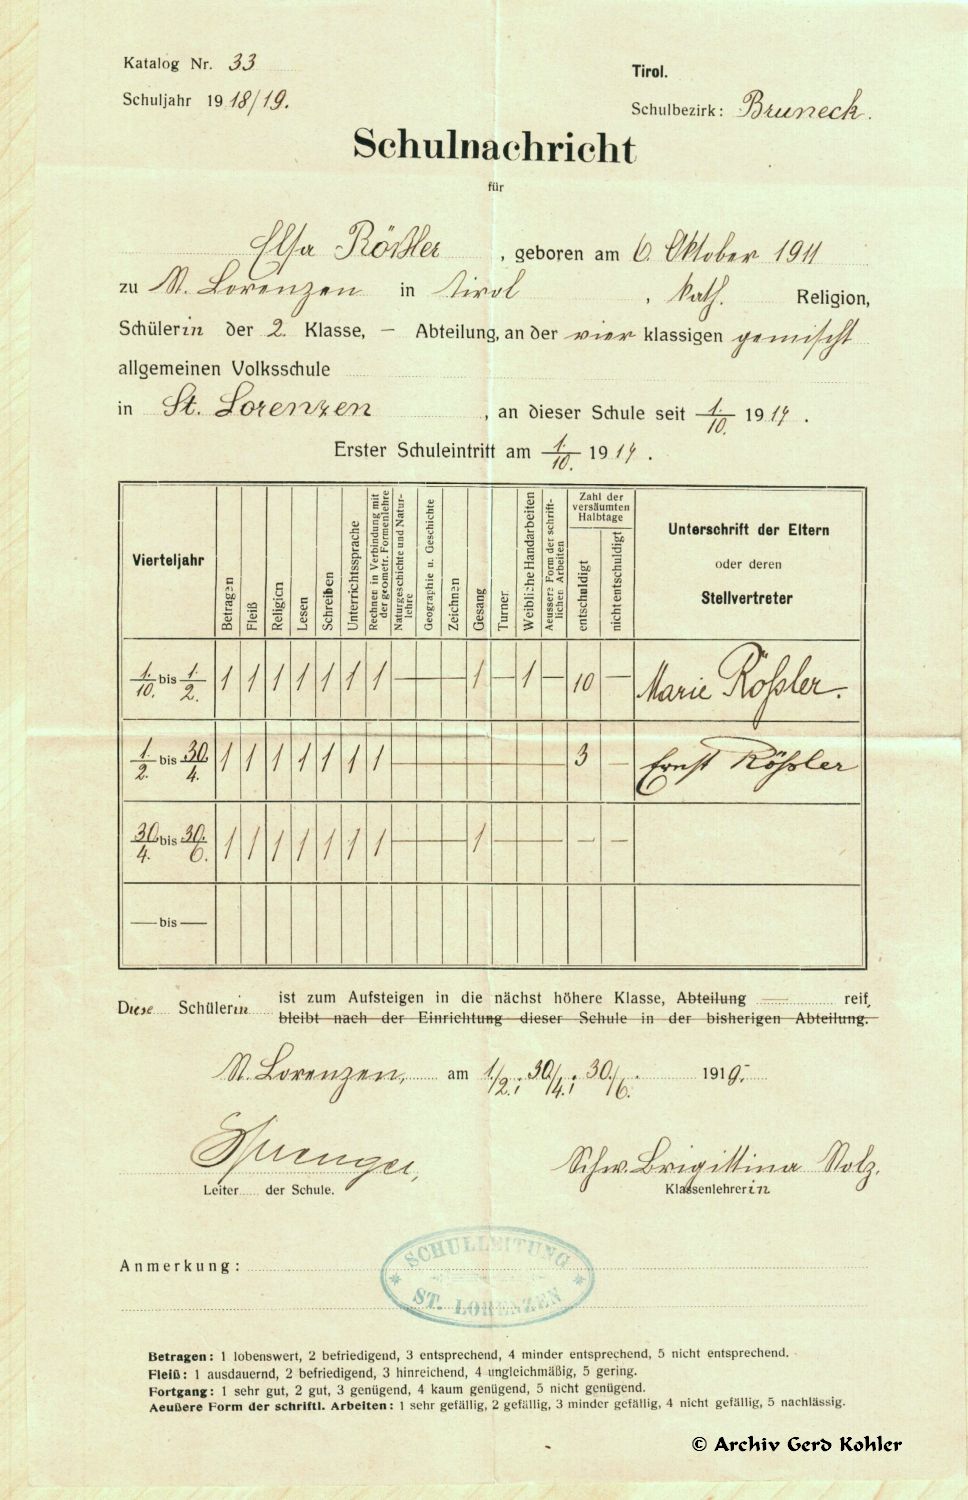 Katalog Nr. 33
Tirol.
Schuljahr 1918/19.
Schulbezirk: Bruneck.
Schulnachricht
für
Elsa Rößler, geboren am 6. Oktober 1911
zu St. Lorenzen in Tirol, kath. Religion,
Schülerin der 2. Klasse, – Abteilung, an der vier klassigen gemischt
allgemeinen Volksschule
in St. Lorenzen, an dieser Schule seit 1./10. 1917.
Erster Schuleintritt am 1./10. 1917.
Vierteljahr
Betragen
Fleiß
Religion
Lesen
Schreiben
Unterrichtssprache
Rechnen in Verbindung mit der geometr. Formenlehre
Naturgeschichte und Naturlehre
Geographie u. Geschichte
Zeichnen
Gesang
Turnen
Weibliche Handarbeiten
Aeussere Form der schriftlichen Arbeiten
Zahl der versäumten Halbtage
entschuldigt
nicht entschuldigt
Unterschrift der Eltern
oder deren
Stellvertreter
1./10. bis 1./2. 1 1 1 1 1 1 1 — — — 1 — 1 — 10 — Marie Rößler.
1./2. bis 30./4. 1 1 1 1 1 1 1 — — — — — — — 3 — Ernst Rößler
30./4. bis 30./6. 1 1 1 1 1 1 1 — — — 1 — — — — —
— bis —
Diese Schülerin ist zum Aufsteigen in die nächst höhere Klasse, Abteilung — reif,
bleibt nach der Einrichtung dieser Schule in der bisherigen Abteilung.
St. Lorenzen, am 1./2.; 30./4.; 30./6. 1919.
Schw. Brigittina Stolz.
Leiter der Schule.
Klassenlehrerin
SCHULLEITUNG
ST. LORENZEN
Anmerkung:
Betragen: 1 lobenswert, 2 befriedigend, 3 entsprechend, 4 minder entsprechend, 5 nicht entsprechend.
Fleiß: 1 ausdauernd, 2 befriedigend, 3 hinreichend, 4 ungleichmäßig, 5 gering.
Fortgang: 1 sehr gut, 2 gut, 3 genügend, 4 kaum genügend, 5 nicht genügend.
Aeußere Form der schriftl. Arbeiten: 1 sehr gefällig, 2 gefällig, 3 minder gefällig, 4 nicht gefällig, 5 nachlässig.
© Archiv Gerd Kohler